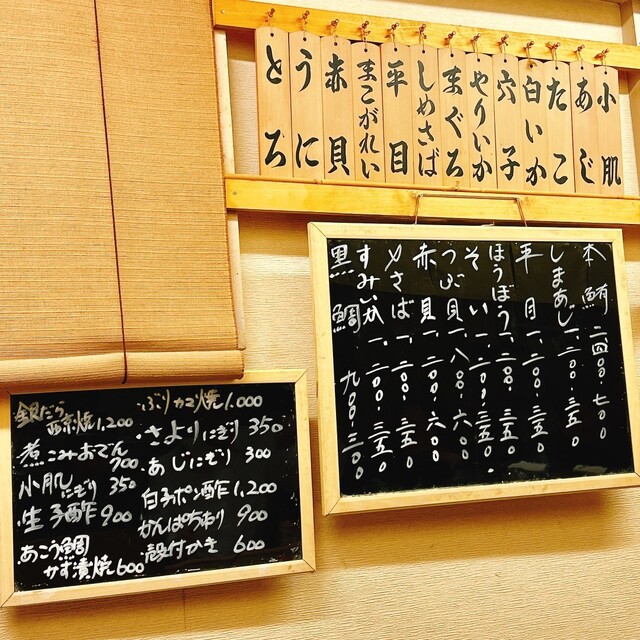 小肌
あじ
たこ
白いか
穴子
やりいか
まぐろ
しめさば
平目
まこがれい
赤貝
うに
とろ
本鮪 二四〇〇. 七〇〇
しまあじ 一、二〇〇. 三五〇
平目 一、二〇〇. 三五〇
ほうぼう 一、二〇〇. 三五〇
そい 一、二〇〇. 三五〇.
つぶ貝 一、八〇〇. 六〇〇
赤貝 一、二〇〇. 六〇〇
〆さば 一、二〇〇. 三五〇
すみいか 一、二〇〇. 三五〇
黒鯛 九〇〇. 三〇〇
銀だら
西京焼 1,200
煮こみおでん
900
小肌にぎり 350
生子酢 900
あこう鯛
かす漬焼 600
ぶりカマ焼 1.000
さよりにぎり 350
あじにぎり 300
白子ポン酢 1,200
かんぱち刺り 900
殻付かき 600